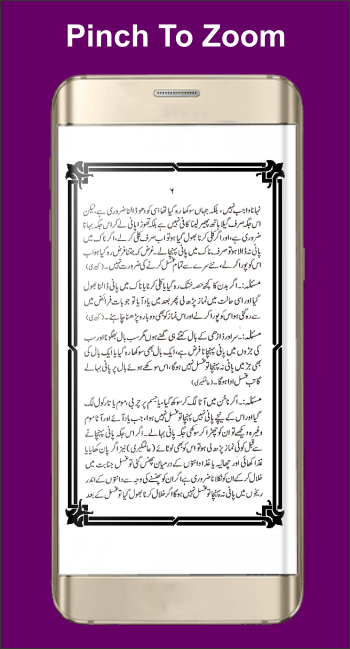 Pinch To Zoom
۶
نہانا واجب نہیں، بلکہ جہاں سوکھا رہ گیا تھا اسی کو دھو ڈالنا ضروری ہے، لیکن
اس جگہ صرف گیلا ہاتھ پھیر لینا کافی نہیں ہے بلکہ تھوڑا پانی لے کر اس جگہ بہانا
ضروری ہے، اور اگر کلی کرنا بھول گیا ہو تو اب صرف کلی کر لے، اگر ناک میں
پانی نہ ڈالا ہو تو صرف ناک میں پانی ڈال لے۔ غرض کہ جتنا فرض رہ گیا ہے
اس کو پورا کر لے، نئے سرے سے تمام غسل کرنے کی ضرورت نہیں۔ (کبیری)
مسئلہ:۔ اگر بدن کا کچھ حصہ خشک رہ گیا یا کلی کرنا یا ناک میں پانی ڈالنا بھول
گیا اور اسی حالت میں نماز پڑھ لی پھر بعد میں یاد آیا تو جو بات فرائض میں
سے رہ گئی ہو اس کو پورا کر لے اور اس نماز کو دوبارہ پڑھنا چاہئے۔ (کبیری)
مسئلہ:۔ سر اور داڑھی کے بال کتنے ہی گھنے ہوں مگر سب بال بھگونا اور سب
کی جڑوں میں پانی پہنچانا فرض ہے، ایک بال بھی سوکھا رہ گیا یا ایک بال کی
بھی جڑ میں پانی نہ پہنچا تو غسل نہیں ہوگا، اس سوکھے ہوئے بال پر پانی بہالے
گا تب غسل ادا ہوگا۔ (عالمگیری)
مسئلہ:۔ اگر ناخن میں آٹا لگ کر سوکھ گیا، یا جسم پر چربی، موم یا تارکول لگ
گیا اور اس کے نیچے پانی نہیں پہنچا تو غسل نہیں ہوا، جب یاد آئے اور آٹا موم
وغیرہ دیکھے تو ان کو چھڑا کر سوکھی جگہ پانی بہالے۔ اگر اس جگہ پانی پہنچانے
سے قبل کوئی نماز پڑھ لی ہو تو اس کو بھی لوٹائے (عالمگیری) نیز اگر پان کھایا یا
غذا کھائی اور چھالیہ یا غذا دانتوں کے درمیان پھنس گئی تو غسل جنابت میں
خلال کر کے ان کو نکالنا ضروری ہے اگر ان کو پھنسے کی وجہ سے دانتوں کے اندر
ریخوں میں پانی نہ پہنچا تو غسل نہیں ہوگا اگر خلال کرنا بھول گیا تو غسل کے بعد